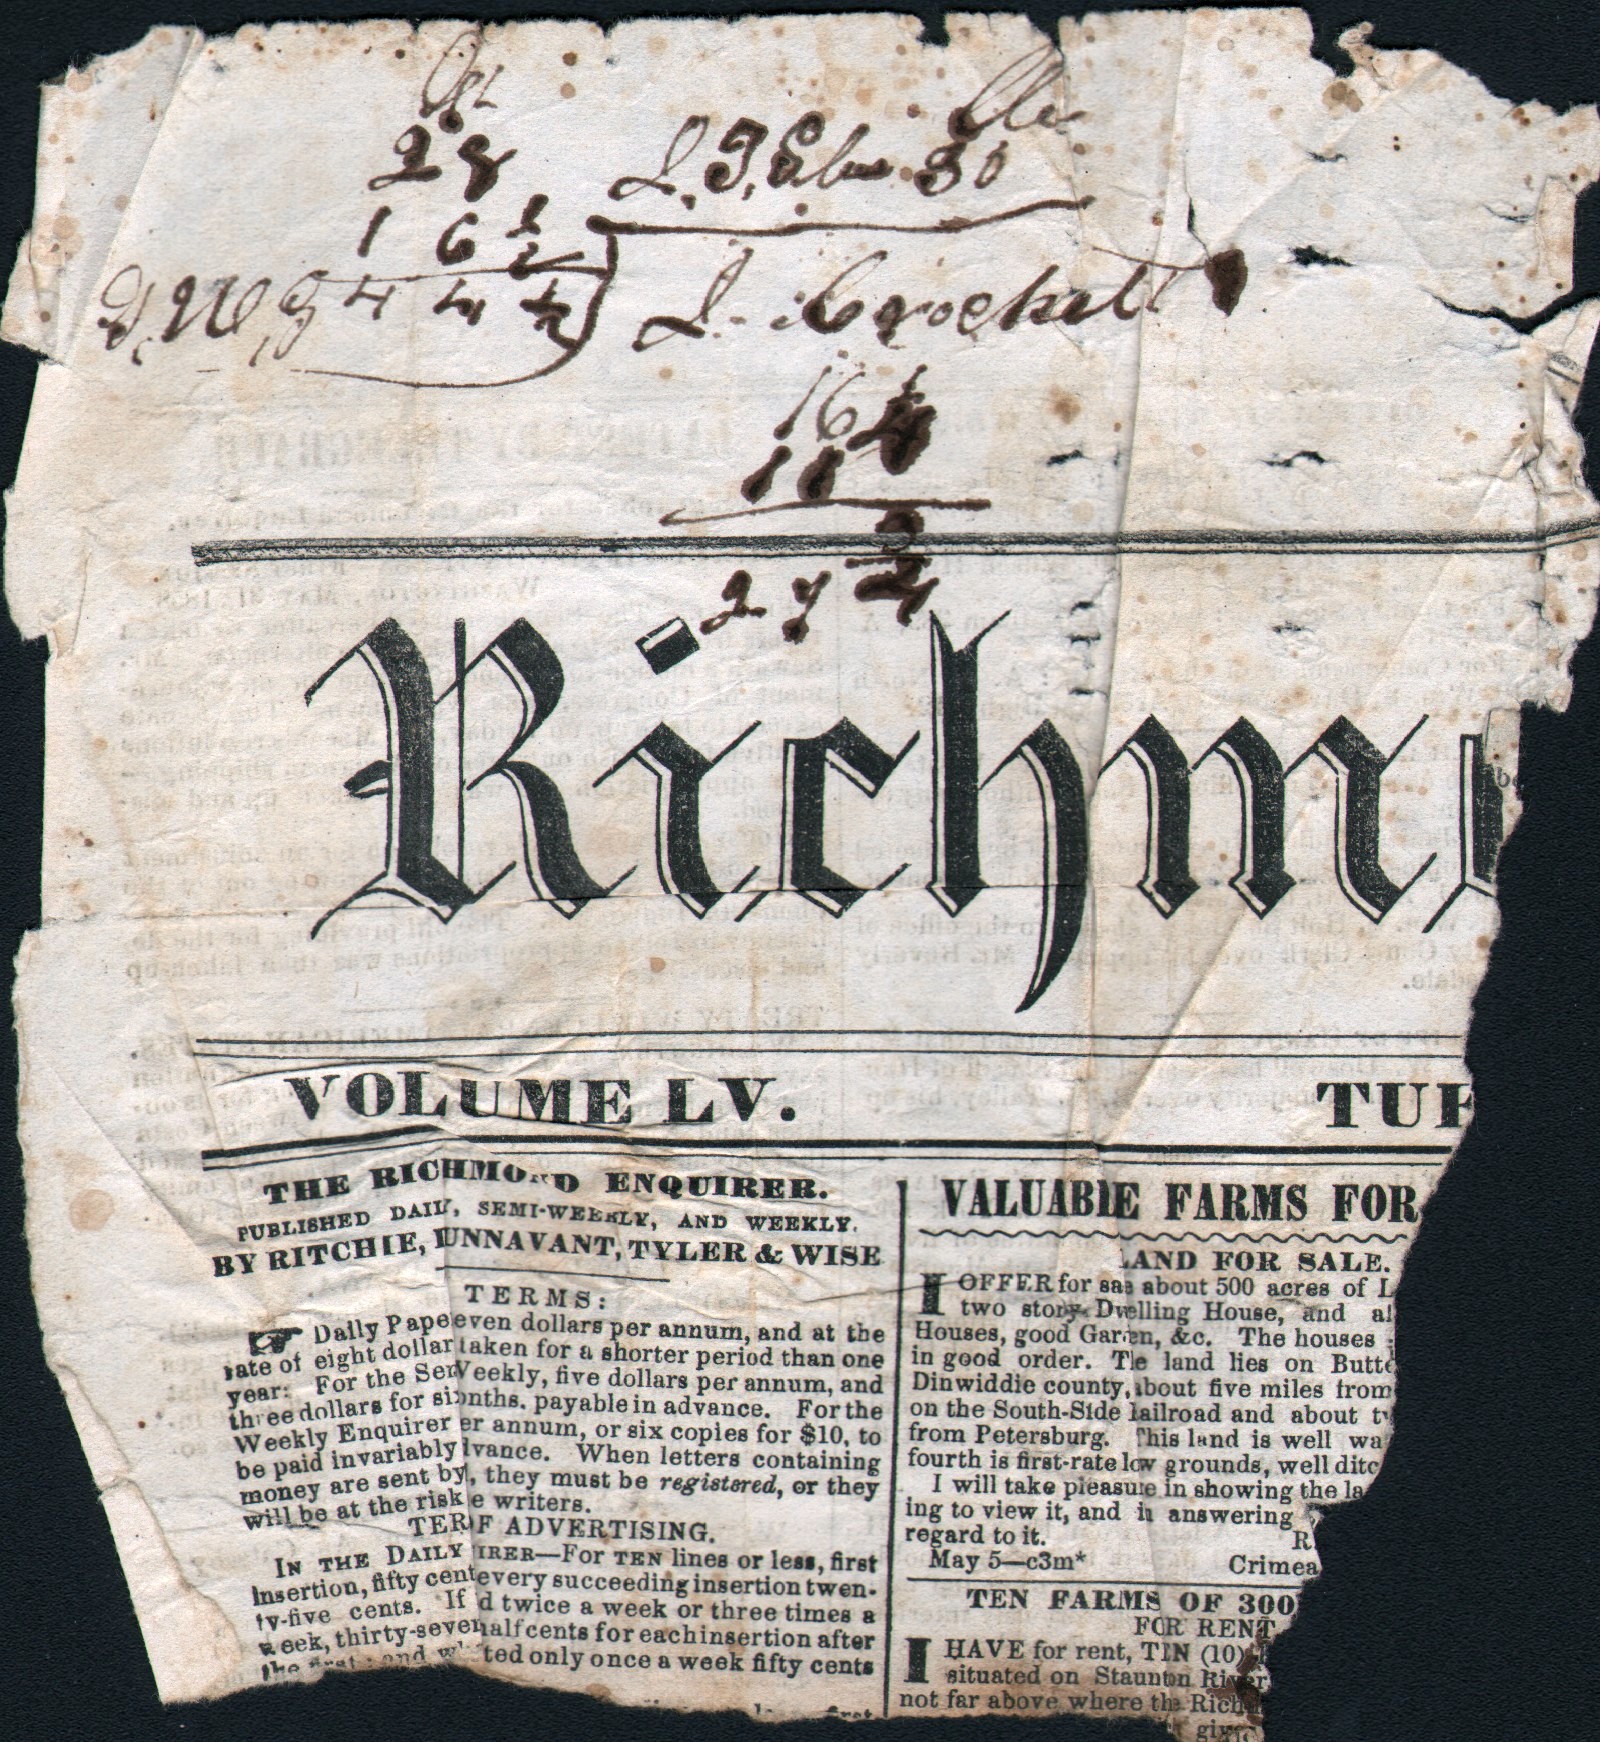 28
16 1/2
44 1/2
30
16
11
27
Richm
VOLUME LV.
TUE
THE RICHMOND ENQUIRER.
PUBLISHED DAILY, SEMI-WEEKLY, AND WEEKLY.
BY RITCHIE, UNNAVANT, TYLER & WISE
TERMS:
☞ Daily Pape even dollars per annum, and at the
rate of eight dollar taken for a shorter period than one
year: For the Sem Weekly, five dollars per annum, and
three dollars for six onths. payable in advance. For the
Weekly Enquirer er annum, or six copies for $10, to
be paid invariably dvance. When letters containing
money are sent by , they must be registered, or they
will be at the risk e writers.
TER F ADVERTISING.
IN THE DAILY IRER—For TEN lines or less, first
insertion, fifty cent every succeeding insertion twen-
ty-five cents. If d twice a week or three times a
week, thirty-seven half cents for each insertion after
the first; and wh ted only once a week fifty cents
first
VALUABLE FARMS FOR
LAND FOR SALE.
I OFFER for sae about 500 acres of L
two story Dwelling House, and al
Houses, good Garen, &c. The houses
in good order. Te land lies on Butte
Dinwiddie county, about five miles from
on the South-Side ailroad and about t
from Petersburg. This land is well wa
fourth is first-rate low grounds, well ditc
I will take pleasure in showing the la
ing to view it, and in answering
regard to it. R
May 5—c3m* Crimea
TEN FARMS OF 300
FOR RENT
I HAVE for rent, TEN (10)
situated on Staunton River
not far above where the Rich
give